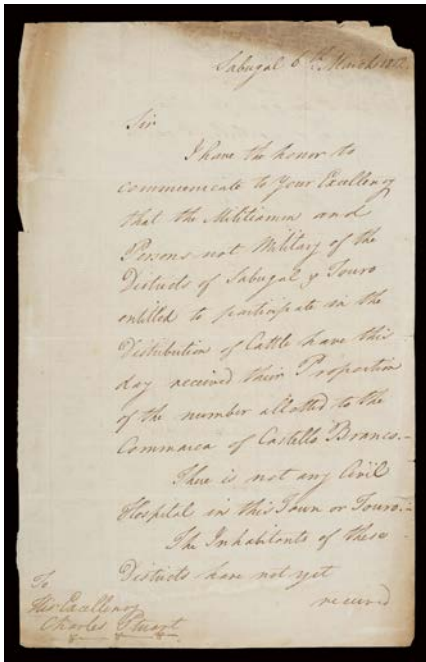 Sabugal 6th March 1812.
Sir
I have the honor to
communicate to Your Excellency
that the Militiamen and
Persons not Military of the
Districts of Sabugal & Touro
entitled to participate in the
Distribution of Cattle have this
day received their Proportion
of the number allotted to the
Commarca of Castello Branco.-
There is not any Civil
Hospital in this Town or Touro.-
The Inhabitants of these
Districts have not yet
received
To
His Excellency
Charles Stuart